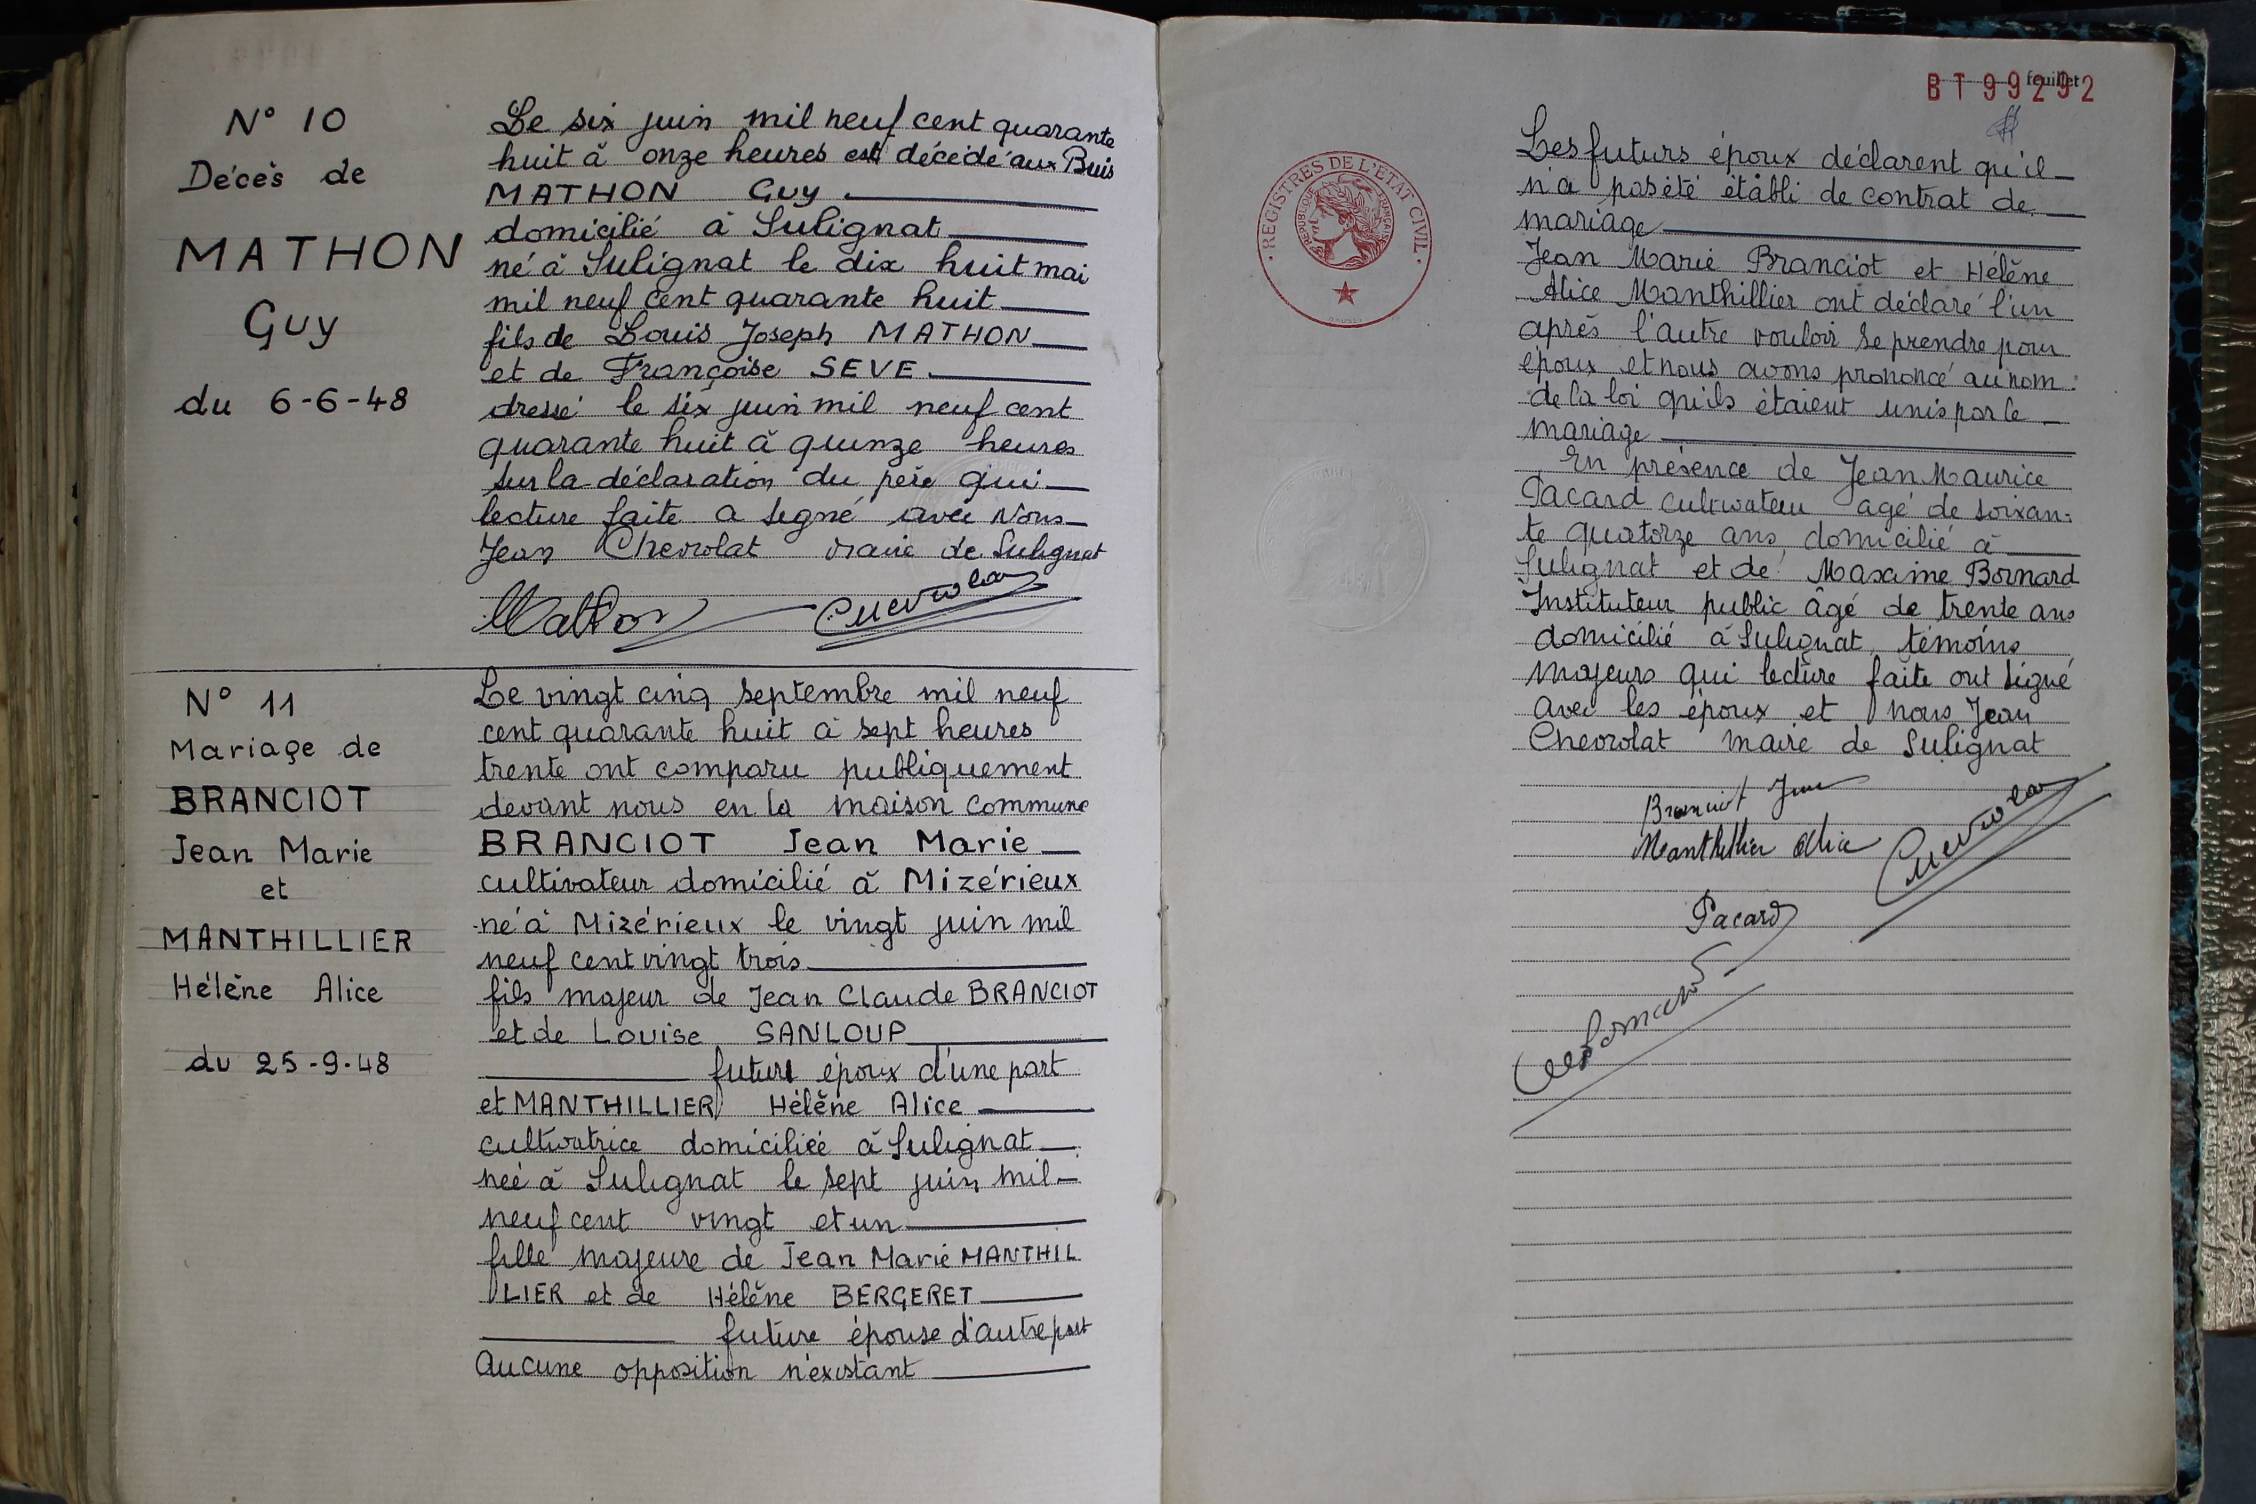 N° 10
Décès de
MATHON
Guy
du 6-6-48
Le six juin mil neuf cent quarante
huit à onze heures est décédé aux Buis
MATHON Guy
domicilié à Sulignat
né à Sulignat le dix huit mai
mil neuf cent quarante huit
fils de Louis Joseph MATHON
et de Françoise SEVE
dressé le six juin mil neuf cent
quarante huit à quinze heures
sur la déclaration du père qui
lecture faite a signé avec Nous
Jean Chevrolat maire de Sulignat
Mathon Chevrolat
N° 11
Mariage de
BRANCIOT
Jean Marie
et
MANTHILLIER
Hélène Alice
du 25-9-48
Le vingt cinq septembre mil neuf
cent quarante huit à sept heures
trente ont comparu publiquement
devant nous en la maison commune
BRANCIOT Jean Marie
cultivateur domicilié à Mizérieux
né à Mizérieux le vingt juin mil
neuf cent vingt trois
fils majeur de Jean Claude BRANCIOT
et de Louise SANLOUP
futur époux d'une part
et MANTHILLIER Hélène Alice
cultivatrice domiciliée à Sulignat
née à Sulignat le sept juin mil
neuf cent vingt et un
fille majeure de Jean Marie MANTHIL
LIER et de Hélène BERGERET
future épouse d'autre part
Aucune opposition n'existant
feuillet
BT99292
REGISTRES DE L'ÉTAT CIVIL
RÉPUBLIQUE FRANÇAISE
Les futurs époux déclarent qu'il
n'a pas été établi de contrat de
mariage
Jean Marie Branciot et Hélène
Alice Manthillier ont déclaré l'un
après l'autre vouloir se prendre pour
époux et nous avons prononcé au nom
de la loi qu'ils étaient unis par le
mariage
En présence de Jean Maurice
Pacard cultivateur agé de soixan-
te quatorze ans domicilié à
Sulignat et de Maxime Bornard
Instituteur public âgé de trente ans
domicilié à Sulignat, témoins
majeurs qui lecture faite ont signé
avec les époux et nous Jean
Chevrolat maire de Sulignat
Branciot Jean
Manthillier Alice
Chevrolat
Pacard